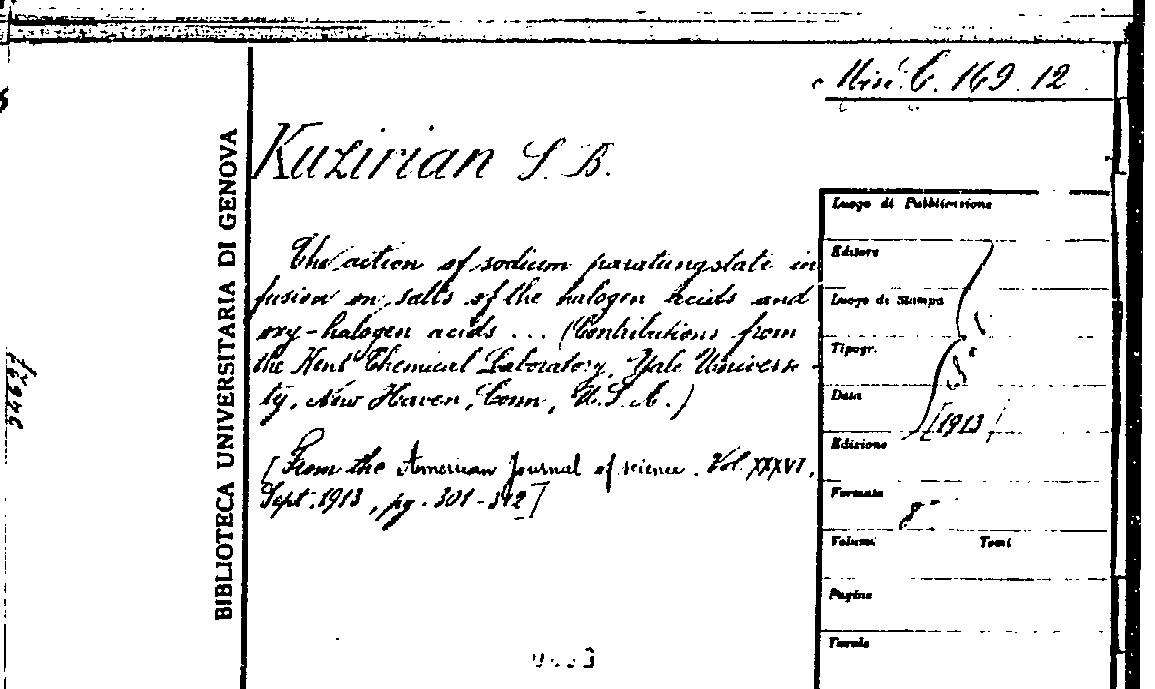 Misc. C. 169. 12
BIBLIOTECA UNIVERSITARIA DI GENOVA
Kuzirian S. B.
The action of sodium paratungstate in
fusion on salts of the halogen acids and
oxy-halogen acids ... (Contributions from
the Kent Chemical Laboratory, Yale Universi-
ty, New Haven, Conn., U.S.A.)
[From the American Journal of science. Vol. XXXVI,
Sept. 1913, pg. 301-312]
Luogo di Pubblicazione
Editore
Luogo di Stampa
Tipogr.
Data
[1913]
Edizione
Formato
8°
Volumi Tomi
Pagine
Tavole